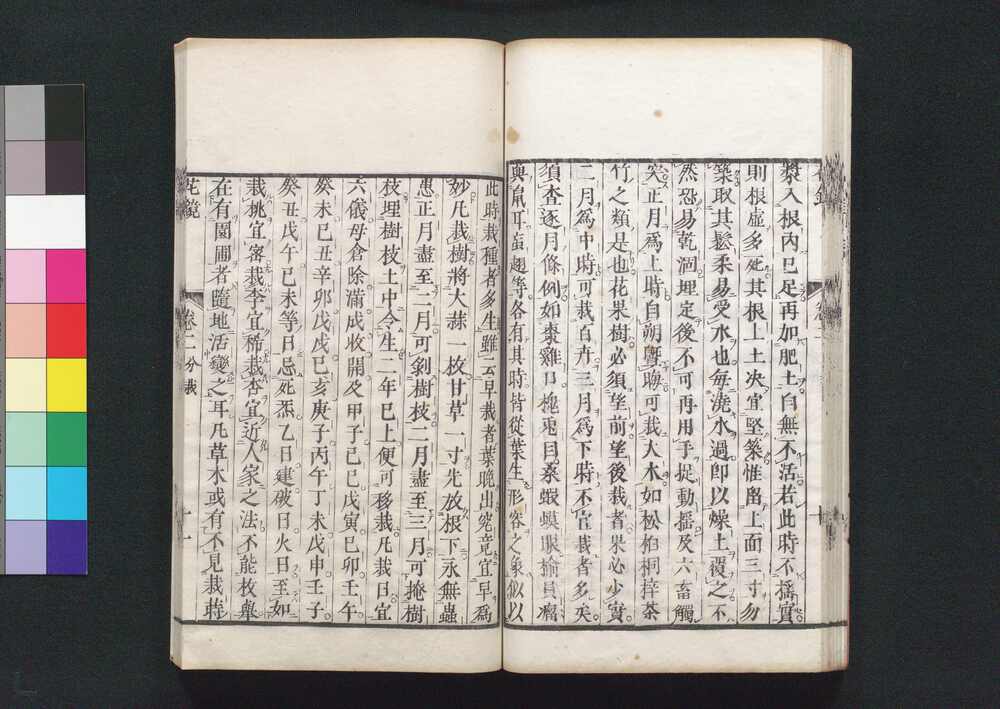 漿入根內已足再加肥土自無不活若此時不搖實
則根虛多死其根上土決宜堅築惟畱上面三寸勿
築取其鬆柔易受水也每澆水過卽以燥土覆之不
然恐易乾涸埋定後不可再用手捉動搖及六畜觸
突正月爲上時自朔曁晦可栽大木如松柏桐梓茶
竹之類是也花果樹必須望前望後栽者果必少實
二月爲中時可栽百卉三月爲下時不宜栽者多矣
須查逐月條例如棗雞口槐兎目桑蝦蟆眼楡負瘤
與鼠耳䖟翅等各有其時皆從葉生形容之象似以
此時栽種者多生雖云早栽者葉晚出究竟宜早爲
妙凡栽樹將大蒜一枚甘草一寸先放根下永無蟲
患正月盡至二月可剝樹枝二月盡至三月可掩樹
枝埋樹枝土中令生二年已上便可移栽凡栽日宜
六儀母倉除滿成收開及甲子己巳戊寅己卯壬午
癸未己丑辛卯戊戌己亥庚子丙午丁未戊申壬子
癸丑戊午己未等日忌死炁乙日建破日火日至如
栽桃宜密栽李宜稀栽杏宜近人家之法不能枚舉
在有園圃者隨地活變之耳凡草木或有不見栽蒔
花鏡
卷二 分栽
十一